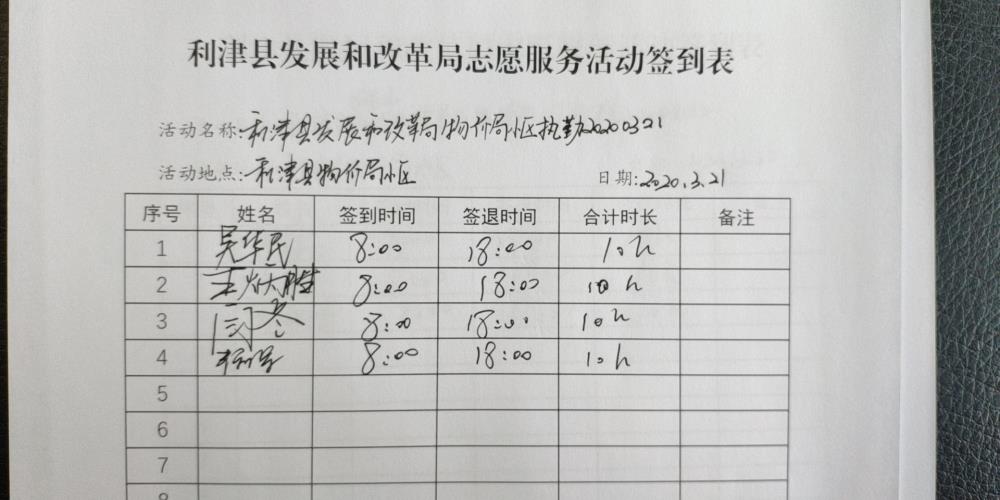 利津县发展和改革局志愿服务活动签到表
活动名称:利津县发展和改革局物价局小区执勤20200321
活动地点:利津县物价局小区 日期:2020.3.21
序号 姓名 签到时间 签退时间 合计时长 备注
1 吴华民 8:00 18:00 10h
2 王炳胜 8:00 18:00 10h
3 8:00 18:00 10h
4 8:00 18:00 10h
5
6
7
8